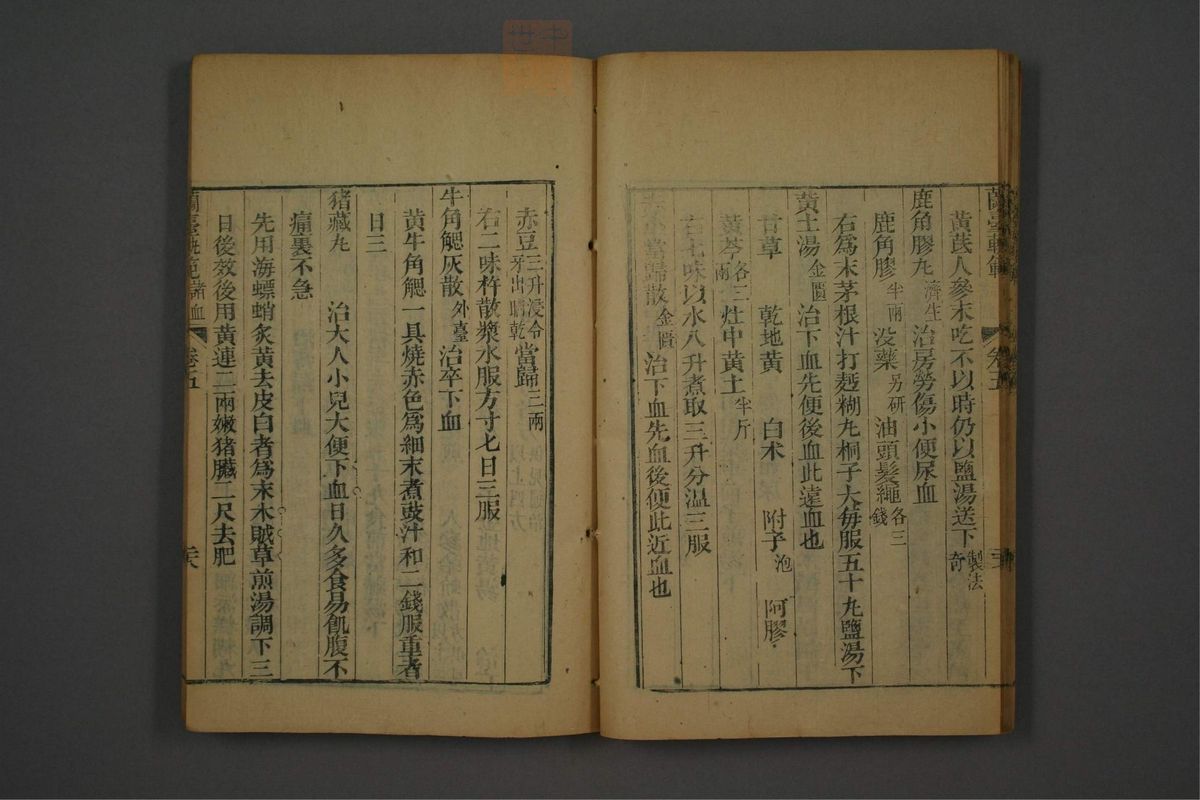 蘭臺軌範 卷五
黃芪人參末吃不以時仍以鹽湯送下製法奇
鹿角膠丸濟生治房勞傷小便尿血
鹿角膠半兩 没藥另研 油頭髮繩各三錢
右爲末茅根汁打麫糊丸桐子大毎服五十丸鹽湯下
黃土湯金匱治下血先便後血此遠血也
甘草 乾地黃 白术 附子泡 阿膠
黃芩各三兩 灶中黃土半斤
右七味以水八升煮取三升分温三服
赤小當歸散金匱治下血先血後便此近血也
赤豆三升浸令牙出晒乾 當歸三兩
右二味杵散漿水服方寸七日三服
牛角䚡灰散外臺治卒下血
黃牛角䚡一具燒赤色爲細末煮豉汁和二錢服重者
日三
猪藏丸 治大人小兒大便下血日久多食易飢腹不
痛裏不急
先用海螵蛸炙黃去皮白者爲末木賊草煎湯調下三
日後效後用黃連二兩嫩猪臟二尺去肥
蘭臺軌範諸血 卷五 六